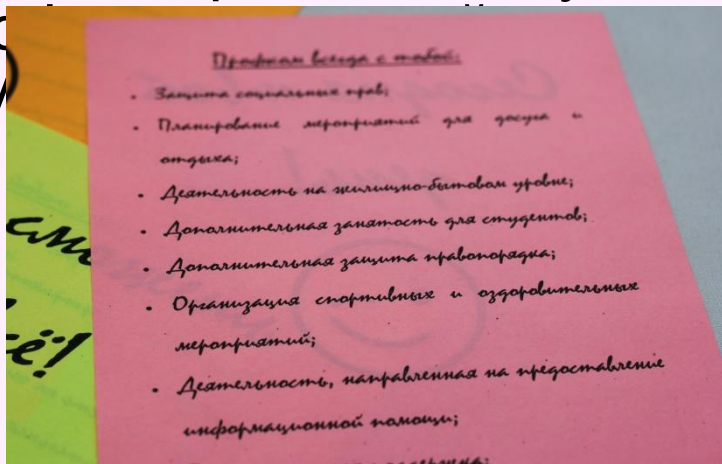 Профком всегда с тобой:
• Защита социальных прав;
• Планирование мероприятий для досуга и
отдыха;
• Деятельность на жилищно-бытовом уровне;
• Дополнительная занятость для студентов;
• Дополнительная защита правопорядка;
• Организация спортивных и оздоровительных
мероприятий;
• Деятельность, направленная на предоставление
информационной помощи;